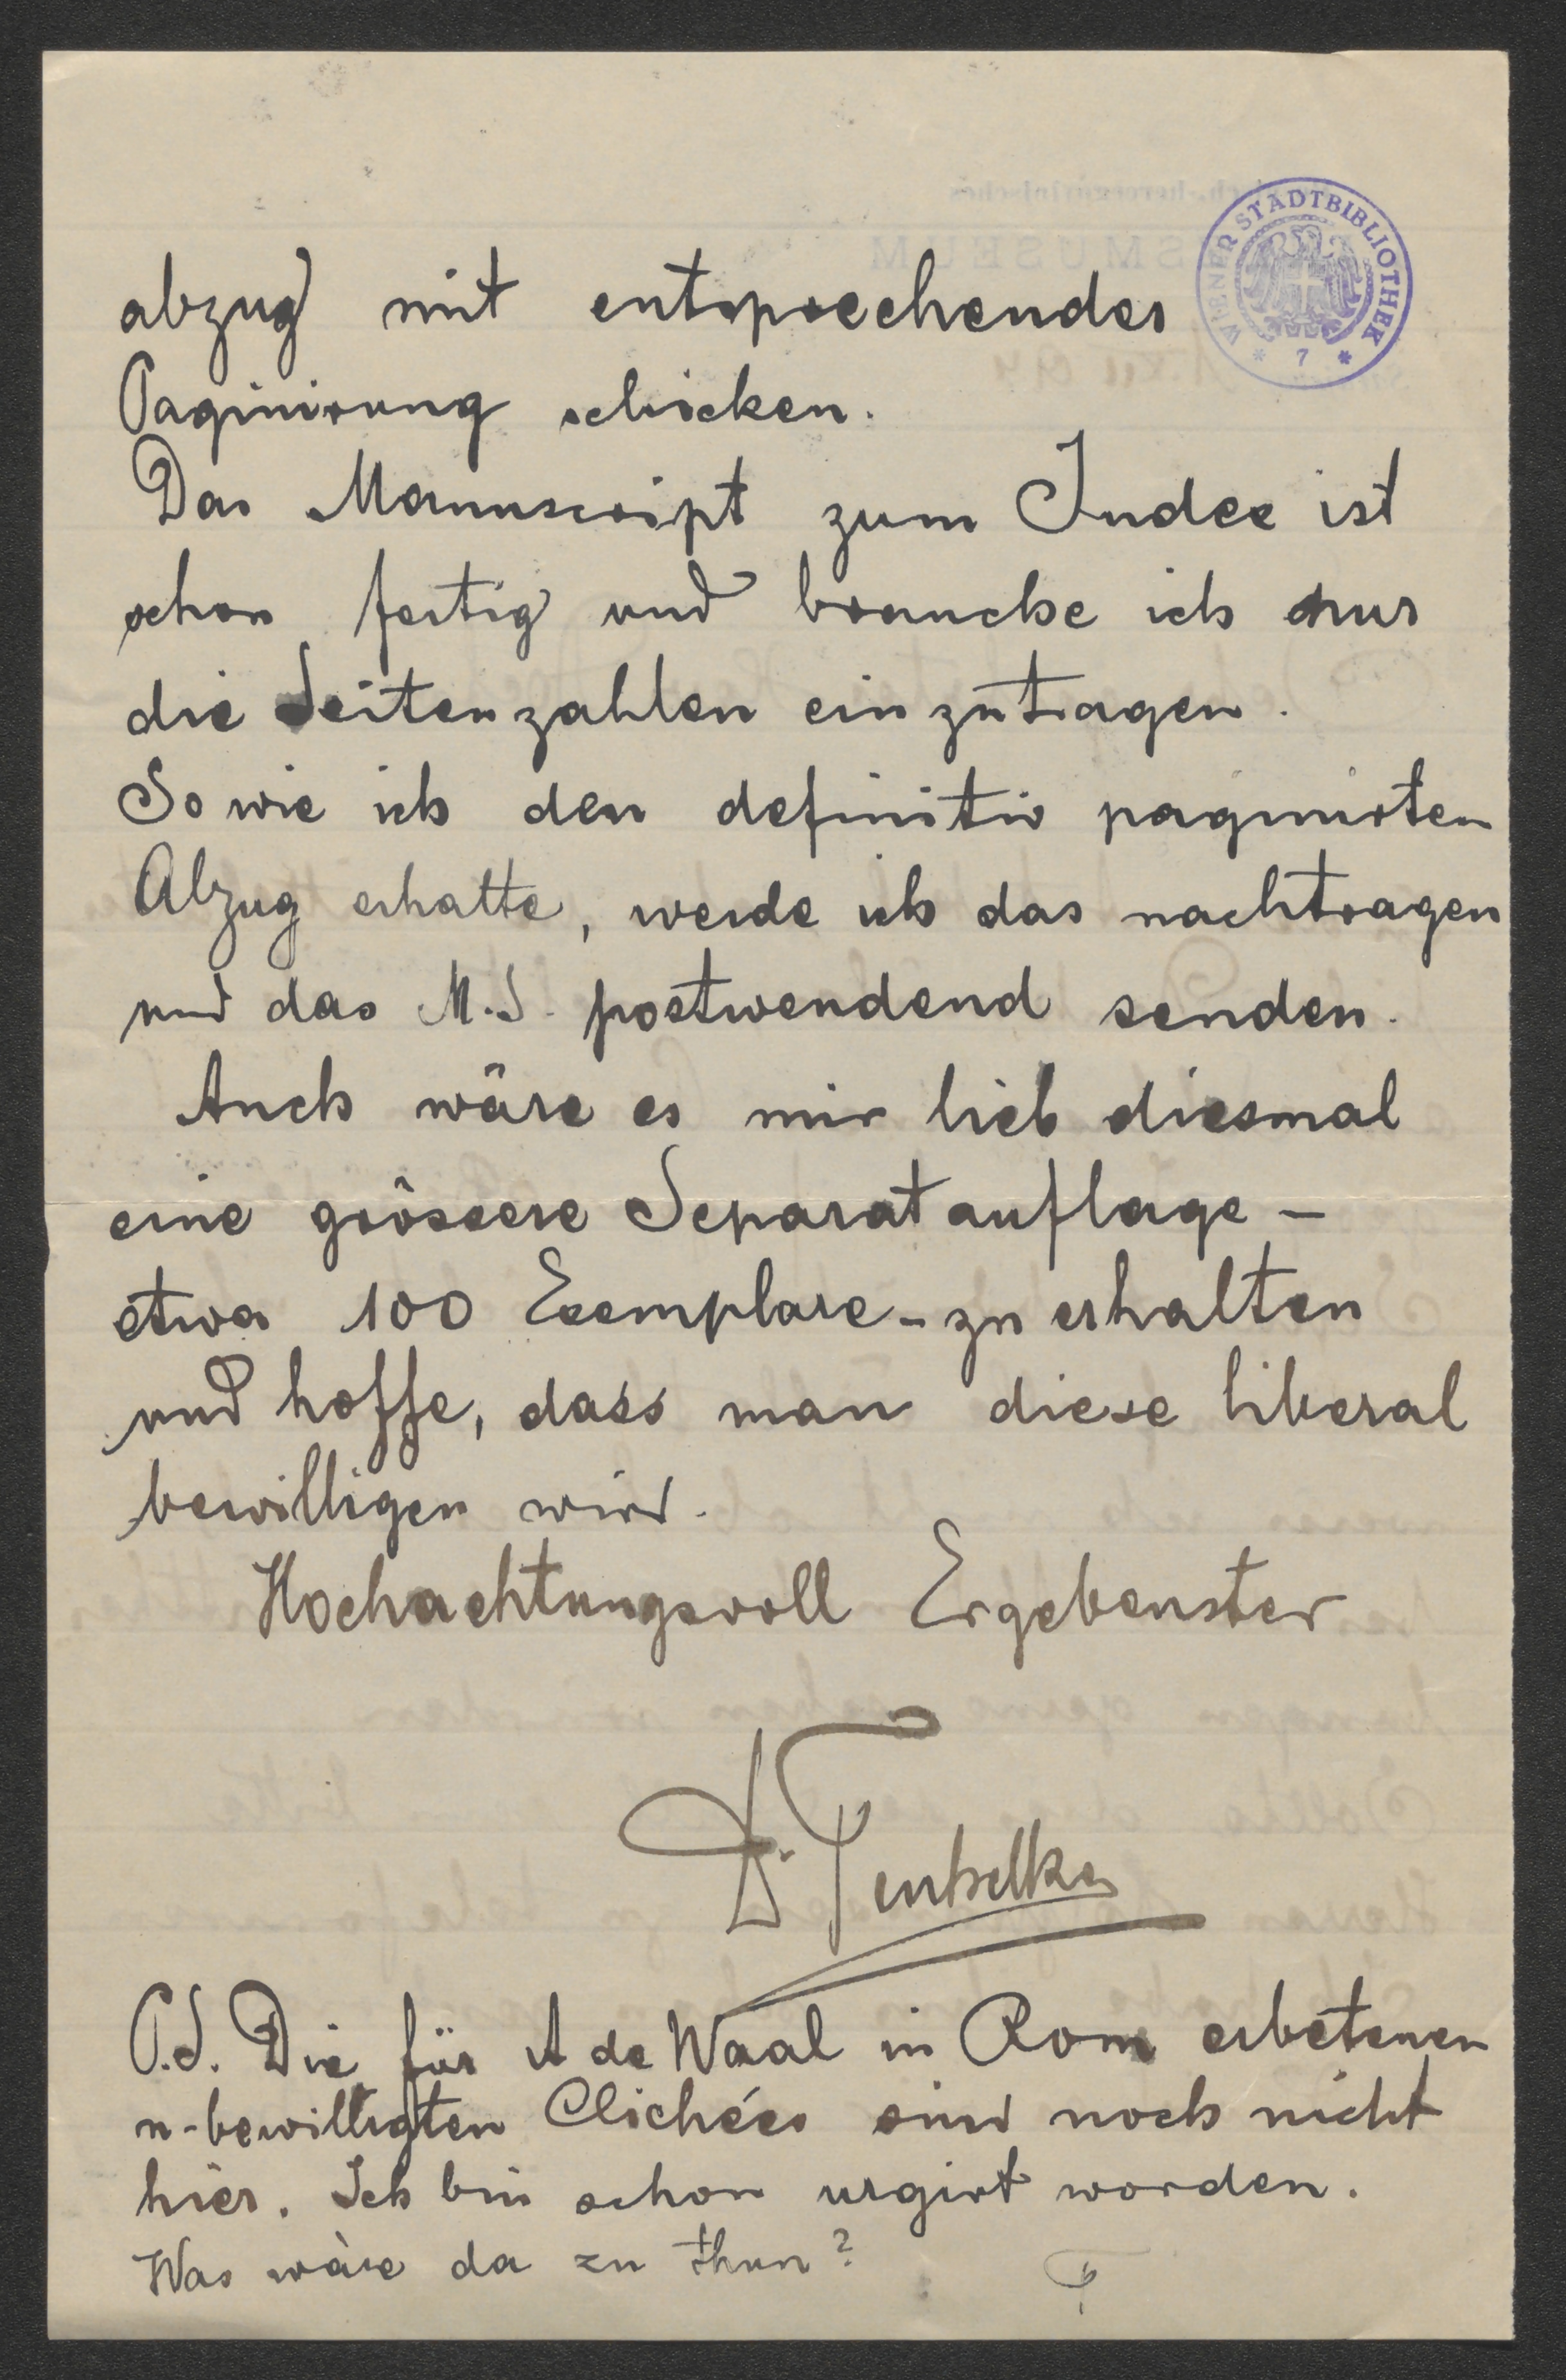 WIENER STADTBIBLIOTHEK
* 7 *
abzug mit entsprechender
Paginirung schicken.
Das Manuscript zum Index ist
schon fertig und brauche ich nur
die Seitenzahlen einzutragen.
Sowie ich den definitiv paginirten
Abzug erhalte, werde ich das nachtragen
und das M.S. postwendend senden.
Auch wäre es mir lieb diesmal
eine grössere Separatauflage –
etwa 100 Exemplare – zu erhalten
und hoffe, dass man diese liberal
bewilligen wird.
Hochachtungsvoll Ergebenster
P.S. Die für A de Waal in Rom erbetenen
u. bewilligten Clichées sind noch nicht
hier. Ich bin schon urgirt worden.
Was wäre da zu thun?
T